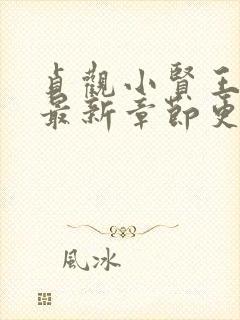 貞觀小賢王
最新章節更
風冰